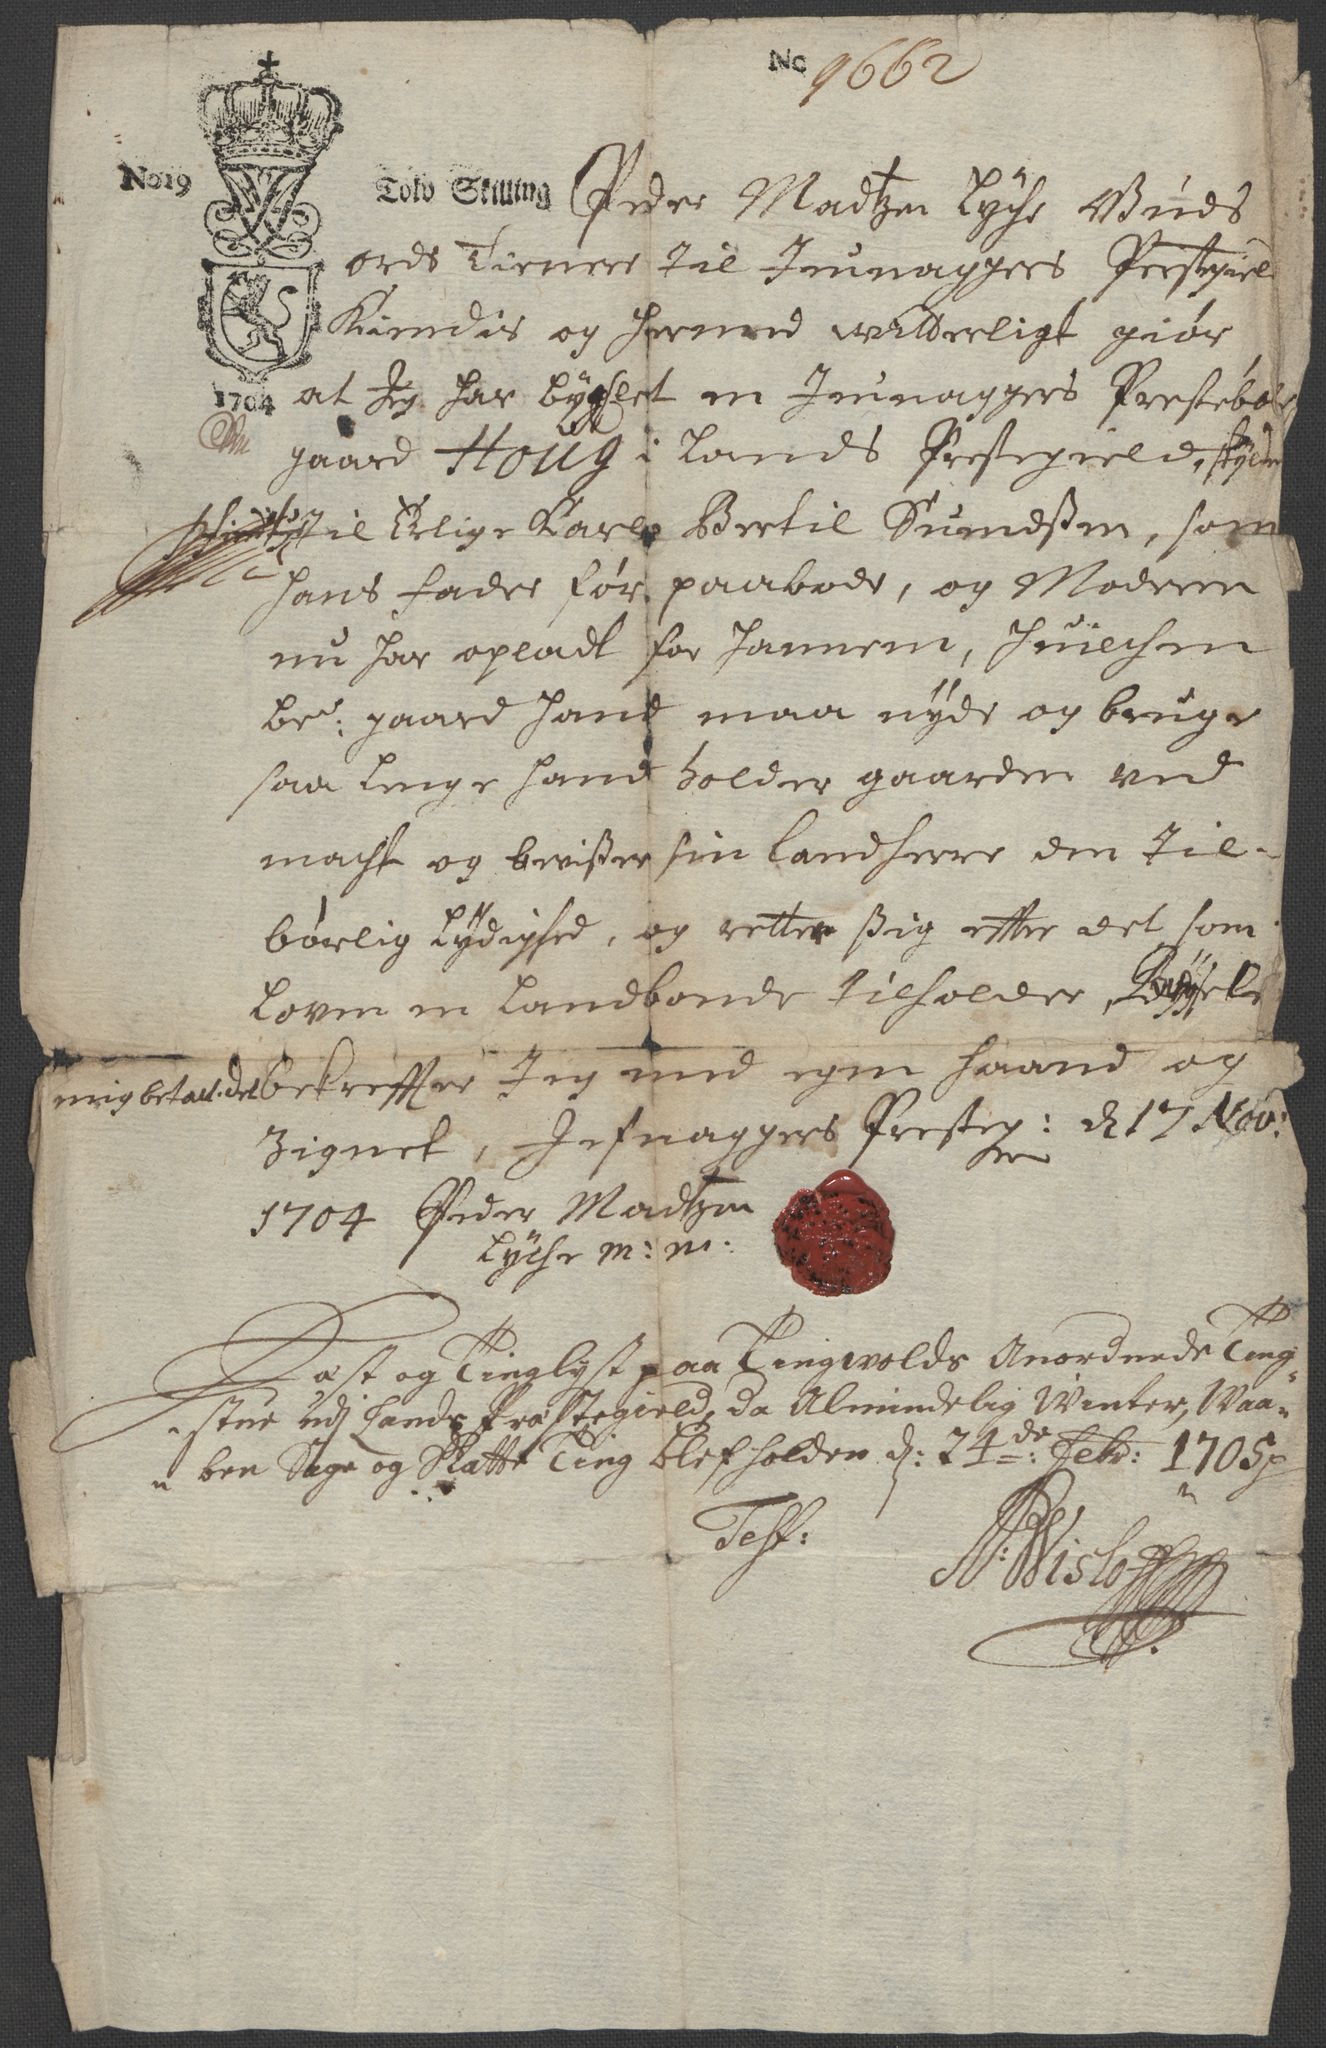 No 9662
No 19
Tolv Skilling Peder Madtzen Lyche Guds
ords Tienere til Jeunaggers Prestegield
Kiendis og hermed witterligt giør
1704 at Jeg har bygslet en Jeunaggers Prestebole
gaard Houg i Lands Prestegield, skylder
til Erlige Karl Bertil Sundßen, som
hans fader før paaboede, og Moderen
nu har opladt for hannem, huilchen
be.te: gaard hand maa nyde og bruge
saa lenge hand holder gaarden ved
macht og bevißer sin Landherre den til-
børlig lydighed, og retter ßig effter det som
Loven en Landbonde tilholder, Bøxele
mig betalt. det bekreffter Jeg med egen haand og
Zignet, Jefnaggers Presteg: d 17 Nov:
1704 Peder Madtzen
Lyche m: m:
Læst og Tinglyst paa Tingvolds Anordnede Ting
stue udj Lands Præstegield, da Almindelig Winter, Waa-
ben Sage og Skatte Ting blef holden d: 24de: Febr: 1705
Test:
N: Wisløff